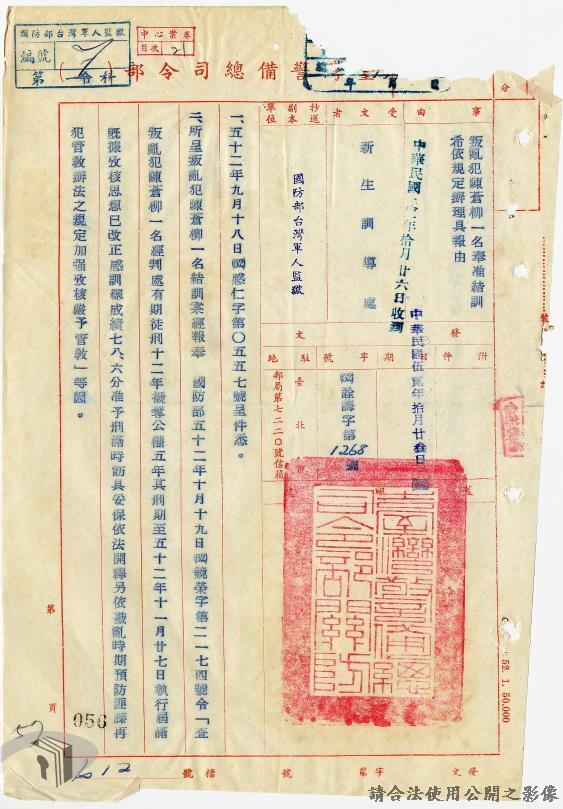 國防部台灣軍人監獄
編號
7
第 合科
中心案卷
目次 21
警備總司令部
年 月 日
事由
叛亂犯陳蒼柳一名奉准結訓
希依規定辦理具報由
中華民國 年拾月廿六日收到
受文者
新生訓導處
抄送
副本
單位
國防部台灣軍人監獄
發文
附件
日期
中華民國伍貳年拾月廿叁日
字號
第1268號
駐地
臺北
郵局第七二二〇號信箱
一、五十二年九月十八日國感仁字第〇五五七號呈件悉。
二、所呈叛亂犯陳蒼柳一名結訓案經報奉 國防部五十二年十月十九日國競榮字第二一七四號令「查
叛亂犯陳蒼柳一名經判處有期徒刑十二年褫奪公權五年其刑期至五十二年十一月廿七日執行屆滿
既據攷核思想已改正感訓總成績七八.六分准予刑滿時飭具妥保依法開釋另依戡亂時期預防匪諜再
犯管教辦法之規定加强攷核嚴予管教」等因。
臺灣警備總司令部關防
52. 1. 50.000
第 頁
056
6012
發文 字第 號 檔號
請合法使用公開之影像